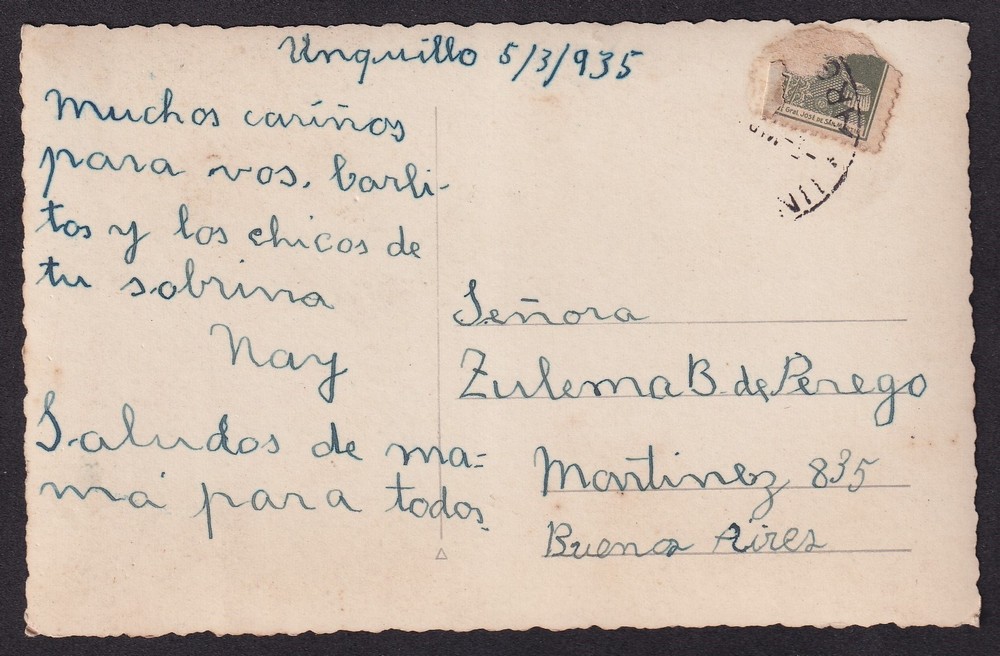 Unquillo 5/3/935
Muchos cariños
para vos, Carli-
tos y los chicos de
tu sobrina
Nay
Saludos de ma=
má para todos.
Gral. JOSÉ DE SAN
Señora
Zulema B. de Perego
Martinez 835
Buenos Aires